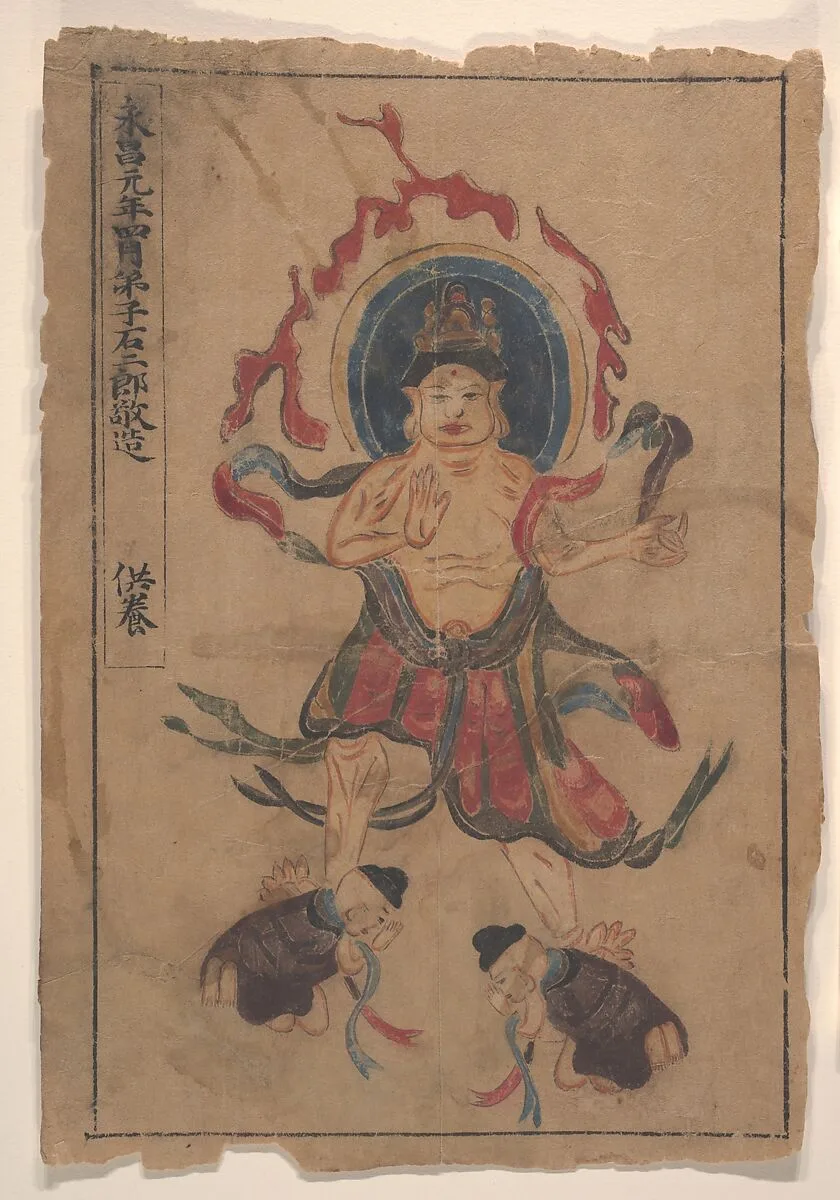 永昌元年四月弟子石二郎敬造 供養